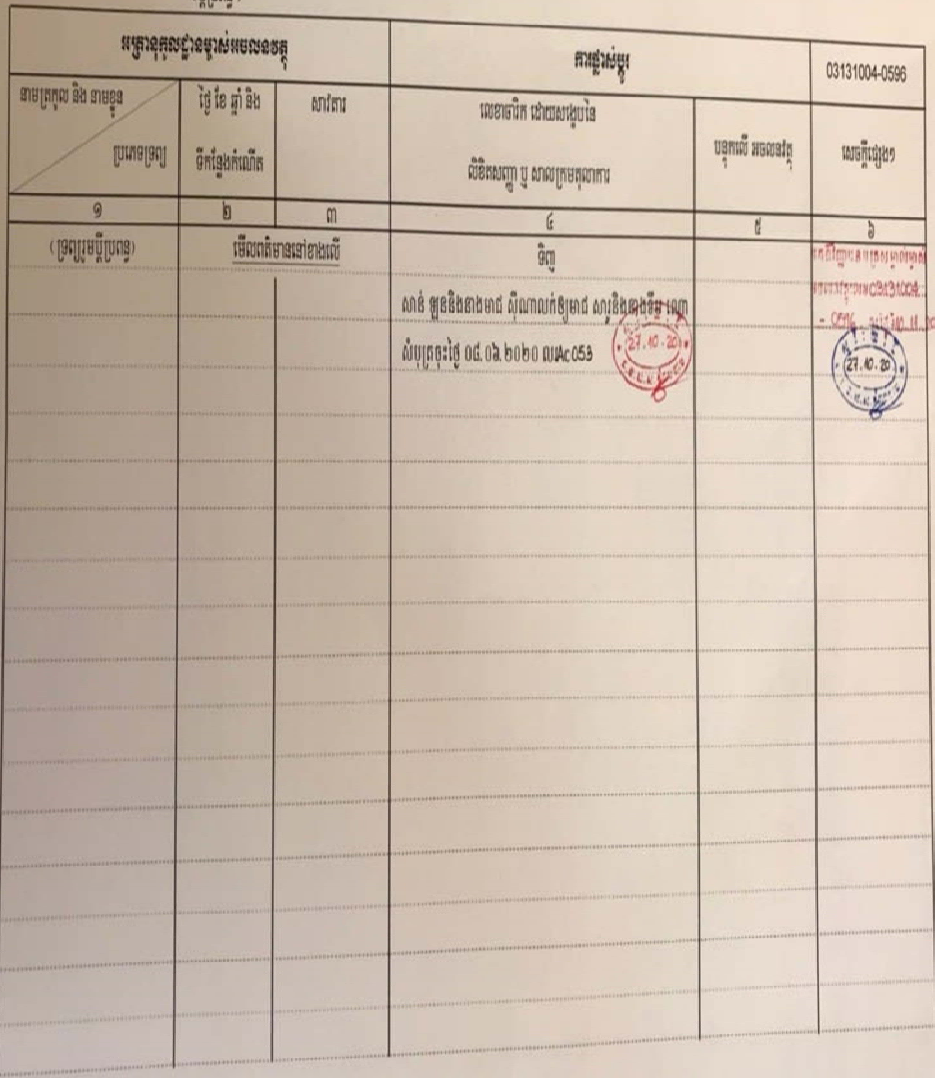 អត្រានុកូលដ្ឋានម្ចាស់អចលនវត្ថុ
ការផ្លាស់ប្តូរ
03131004-0596
នាមត្រកូល និង នាមខ្លួន
ប្រភេទទ្រព្យ
ថ្ងៃ ខែ ឆ្នាំ និង
ទីកន្លែងកំណើត
សាវតារ
លេខាចារឹក ដោយសង្ខេបនៃ
លិខិតសញ្ញា ឬ សាលក្រមតុលាការ
បន្ទុកលើ អចលនវត្ថុ
សេចក្តីផ្សេងៗ
១ ២ ៣ ៤ ៥ ៦
(ទ្រព្យរួមប្តីប្រពន្ធ)
មើលពត៌មាននៅខាងលើ
ទិញ
សាន់ ឡុននិងនាងមាជ ស៊ីណាលក់ឱ្យមាជ សារូនិងនាងទឹម ទេញ
សំបុត្រចុះថ្ងៃ ០៤.០៦.២០២០ លរAc053
03131004
- 0596
27.10.20
27.10.20